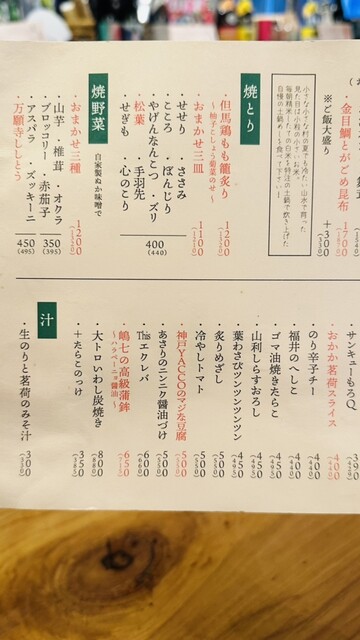 ・金目鯛とがごめ昆布 1700
※ご飯大盛り +300 (330)
焼とり
・但馬鶏もも龍炙り 1200
〜柚子こしょう菊菜のせ〜
・おまかせ三皿 1100
・せせり ・ささみ
・こころ ・ぼんじり
・やげんなんこつ ・ズリ
・松葉 ・手羽先
・せぎも ・心のこり
400 (440)
焼野菜
自家製ぬか味噌で
・おまかせ三種 1200
・山芋 ・椎茸 ・オクラ
・ブロッコリー ・赤茄子
350 (395)
・アスパラ ・ズッキーニ
・万願寺ししとう
450 (495)
・サンキューもろQ 390
・おかか茗荷スライス 400
・のり辛子チー 400 (440)
・福井のへしこ 400 (440)
・ゴマ油焼きたらこ 450 (495)
・山利しらすおろし 450 (495)
・葉わさびツンツンツンツン 450 (495)
・炙りめざし 500 (550)
・冷やしトマト 500 (550)
・神戸YACCOのマジな豆腐 500 (550)
・あさりのニンニク醤油づけ 500 (550)
・Thisエクレバ 600 (660)
・嶋七の高級蒲鉾 650 (715)
〜ハラペーニョ醤油〜
・大トロいわし炭焼き 800 (880)
・+たらこのっけ 350 (385)
汁
・生のりと茗荷のみそ汁 300 (330)